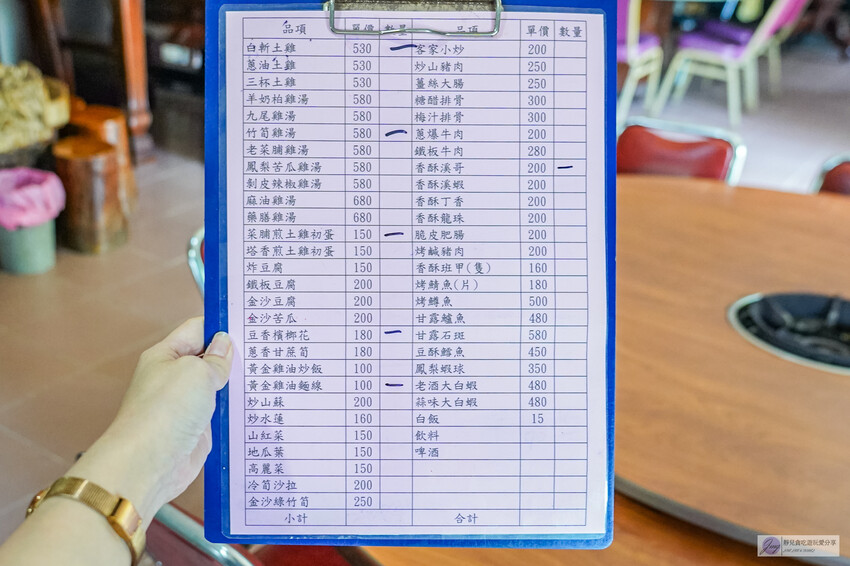 品項 單價 數量 品項 單價 數量
白斬土雞 530 一 客家小炒 200
蔥油土雞 530 炒山豬肉 250
三杯土雞 530 薑絲大腸 250
羊奶柏雞湯 580 糖醋排骨 300
九尾雞湯 580 梅汁排骨 300
竹筍雞湯 580 一 蔥爆牛肉 200
老菜脯雞湯 580 鐵板牛肉 280
鳳梨苦瓜雞湯 580 香酥溪哥 200 一
剝皮辣椒雞湯 580 香酥溪蝦 200
麻油雞湯 680 香酥丁香 200
藥膳雞湯 680 香酥龍珠 200
菜脯煎土雞初蛋 150 一 脆皮肥腸 200
塔香煎土雞初蛋 150 烤鹹豬肉 200
炸豆腐 150 香酥班甲(隻) 160
鐵板豆腐 200 烤鯖魚(片) 180
金沙豆腐 200 烤鱒魚 500
金沙苦瓜 200 甘露鱸魚 480
豆香檳榔花 180 一 甘露石斑 580
蔥香甘蔗筍 180 豆酥鱈魚 450
黃金雞油炒飯 100 鳳梨蝦球 350
黃金雞油麵線 100 一 老酒大白蝦 480
炒山蘇 200 蒜味大白蝦 480
炒水蓮 160 白飯 15
山紅菜 150 飲料
地瓜葉 150 啤酒
高麗菜 150
冷筍沙拉 200
金沙綠竹筍 250
小計 合計
靜兒貪吃遊玩愛分享